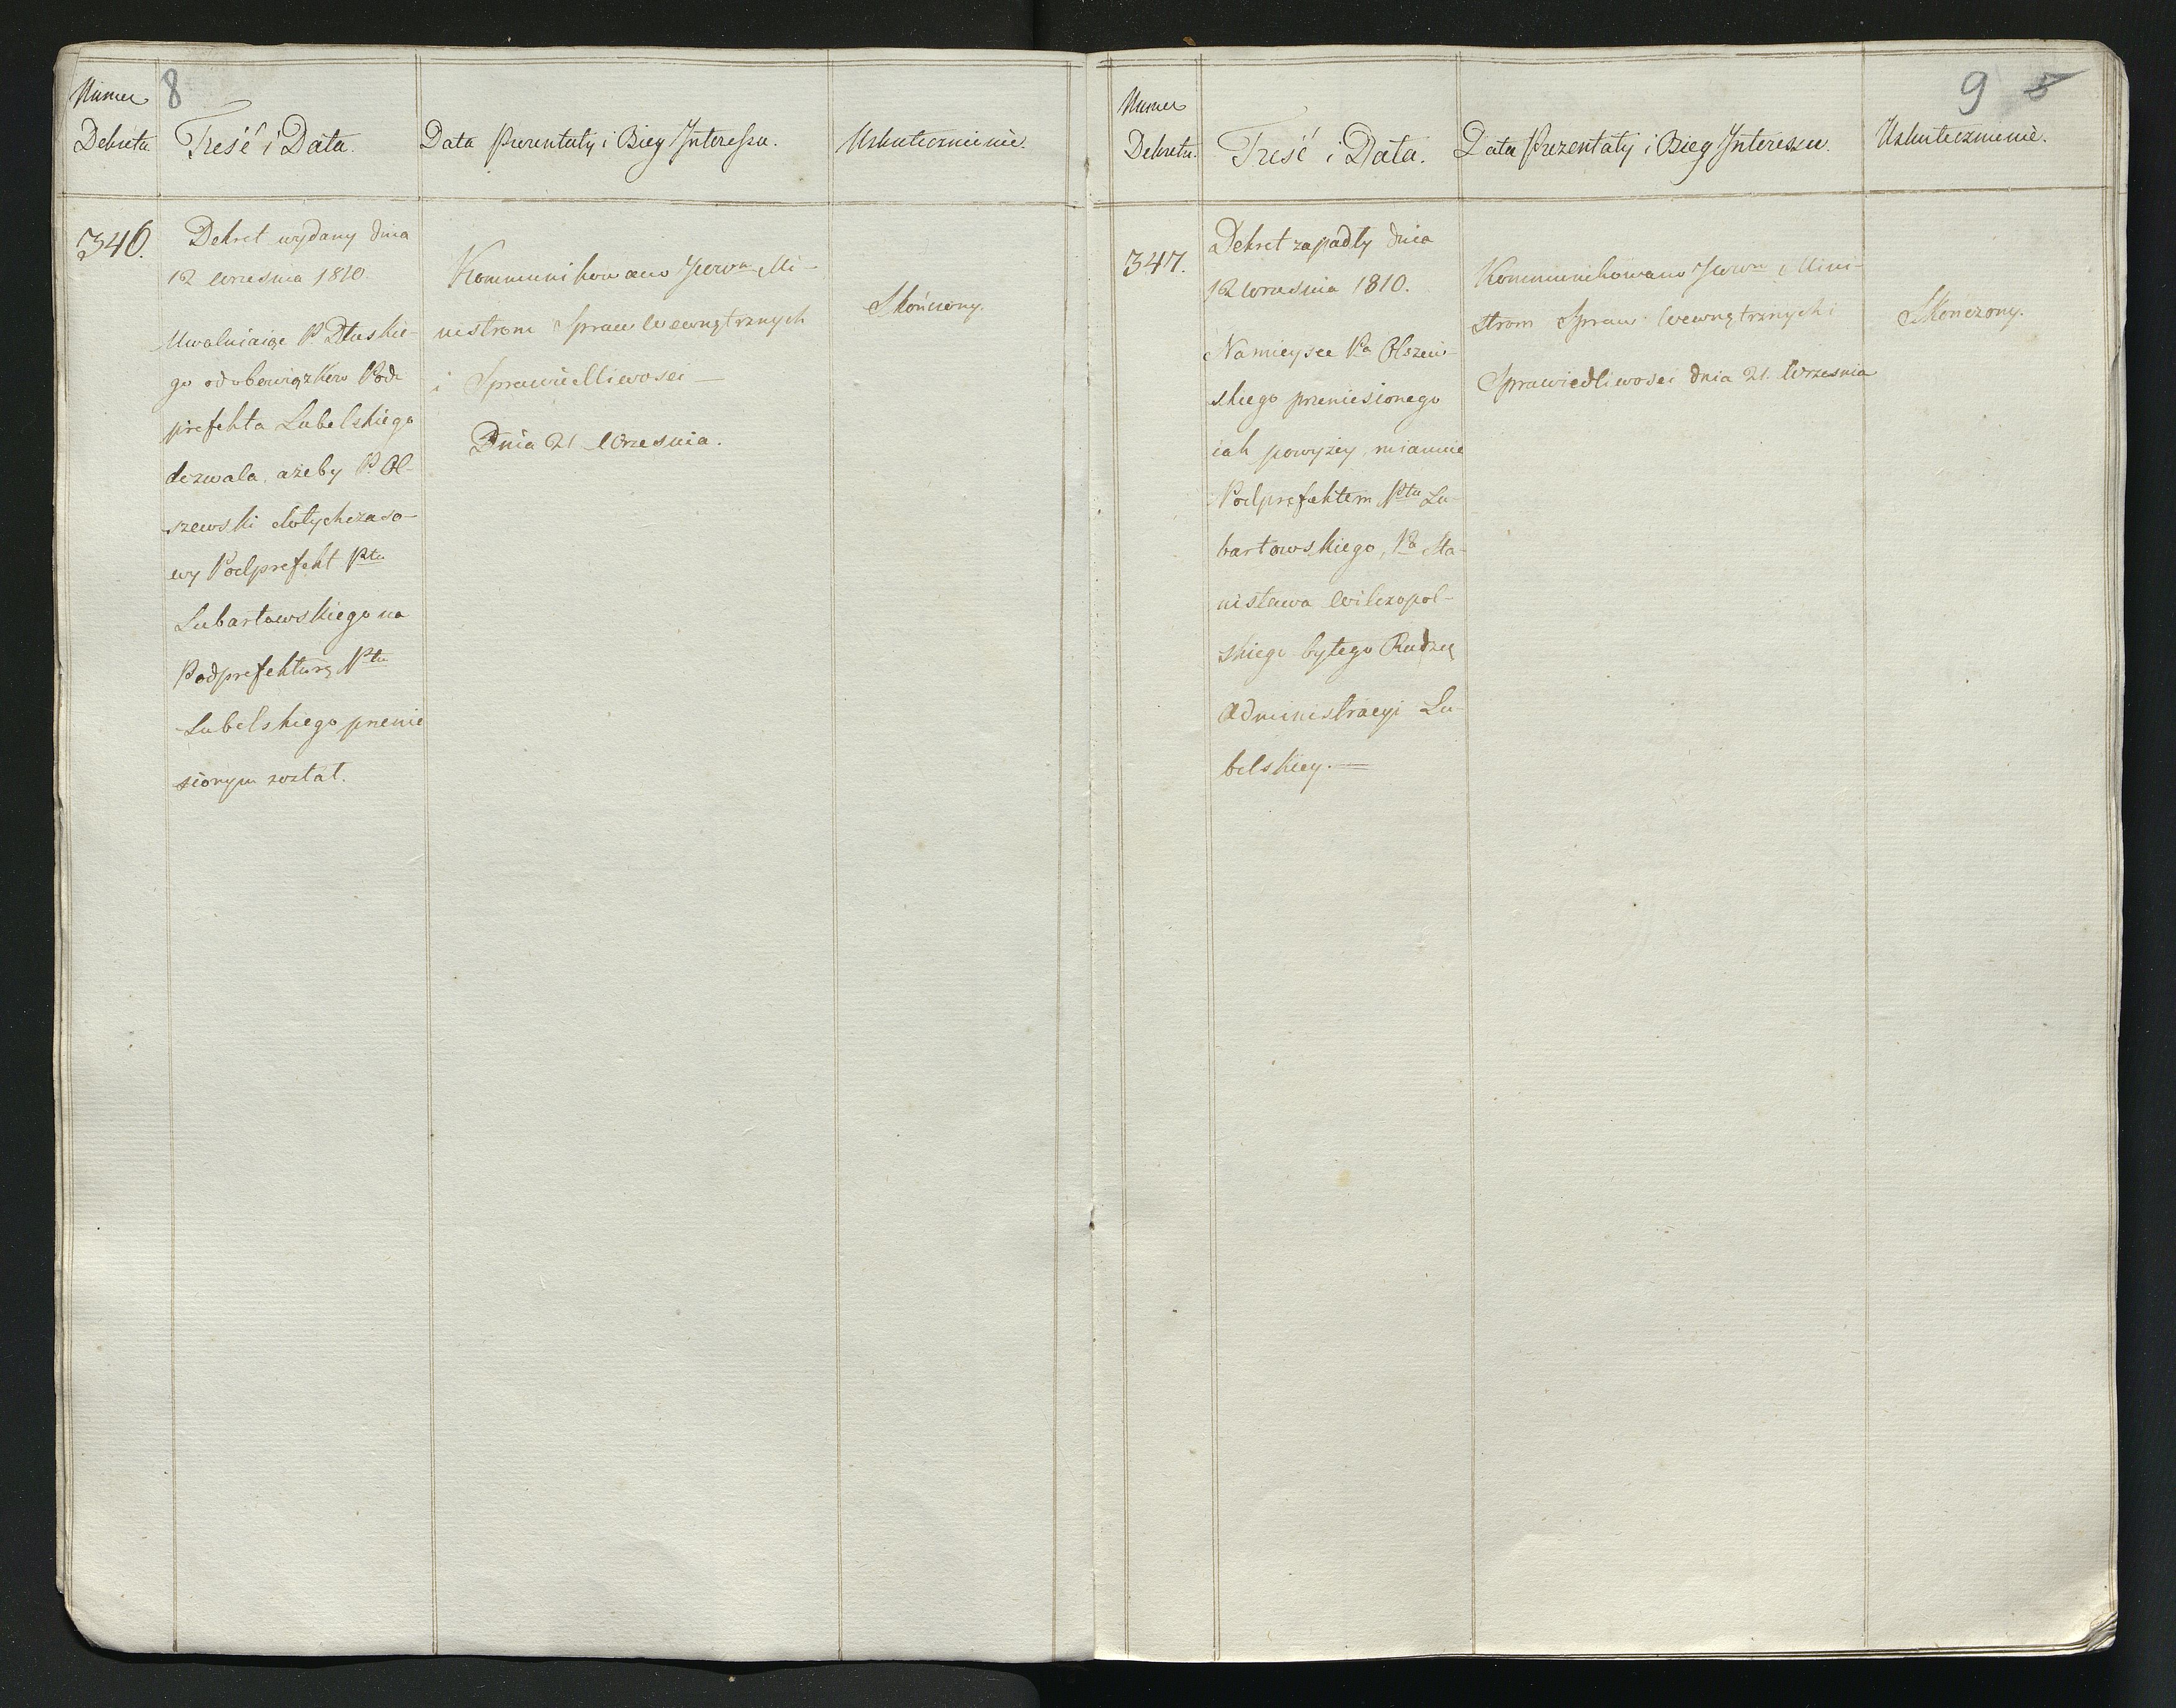 8
Numer
Dekretu
Treść i Data.
Data Prezentaty i Bieg Interessu.
Uskutecznienie.
346.
Dekret wydany dnia
12 Września 1810.
Uwalniaiąc P. Dłuskie-
go od obowiązków Pod-
prefekta Lubelskiego
dozwala, ażeby P. Ol-
szewski dotychczaso-
wy Podprefekt Pttu
Lubartowskiego na
Podprefekturę Pttu
Lubelskiego przenie
sionym został.
Kommunikowano JWWm Mi-
nistrom Spraw Wewnętrznych
i Sprawiedliwosci —
Dnia 21 Września.
Skończony.
9 8
Numer
Dekretu.
Treść i Data.
Data Prezentaty i Bieg Interessu.
Uskutecznienie.
347.
Dekret zapadły dnia
12 Września 1810.
Na mieysce Pa Olszew-
skiego przeniesionego
iak powyżey, mianuie
Podprefektem Pttu Lu-
bartowskiego, Pa Sta-
nisława Wilczopol-
skiego byłego Radzcę
Administracyi Lu-
belskiey. —
Kommunikowano JWWm Mini-
strom Spraw Wewnętrznych i
Sprawiedliwosci dnia 21. Września
Skończony.